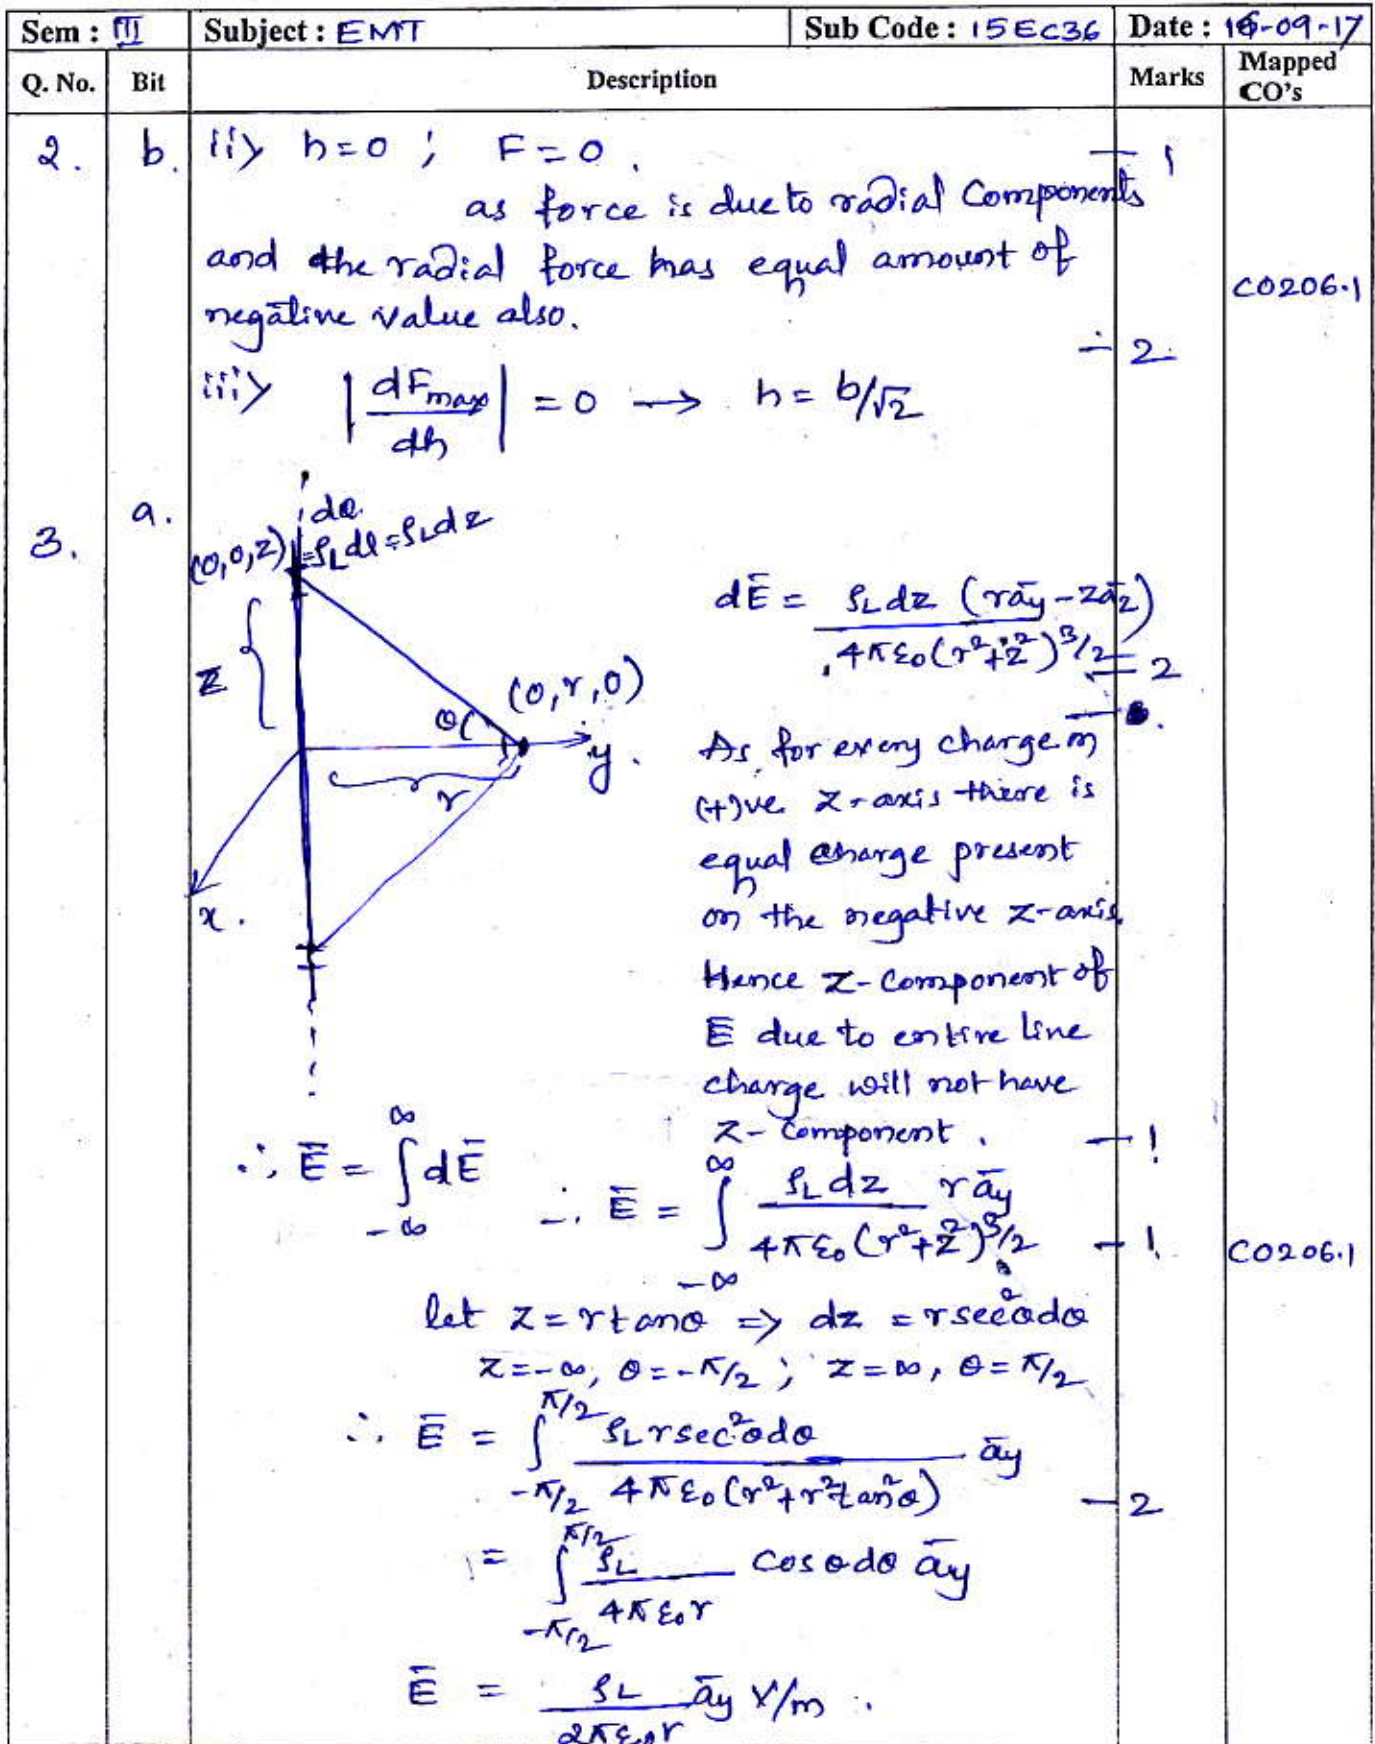 Sem : III Subject : EMT Sub Code : 15EC36 Date : 16-09-17
Q. No. Bit Description Marks Mapped CO's
2. b. ii> h=0 ; F=0. — 1
as force is due to radial Components
and the radial force has equal amount of
negative value also.
CO206.1
— 2.
iii> |dF_max/dh| = 0 → h = b/√2
3. a.
dQ
(0,0,z) =ρ_L dl = ρ_L dz
dĒ = ρ_L dz (r ā_y − z ā_z) / 4πε₀(r²+z²)^3/2 — 2
z
(0,r,0)
θ
y.
r
x.
As for every charge in
(+)ve z-axis there is
equal charge present
on the negative z-axis.
Hence z-component of
Ē due to entire line
charge will not have
z-component. — 1
∴ Ē = ∫_{-∞}^{∞} dĒ ∴ Ē = ∫_{-∞}^{∞} ρ_L dz / 4πε₀(r²+z²)^3/2 r ā_y — 1.
CO206.1
let z = r tanθ => dz = r sec²θdθ
z=-∞, θ=-π/2 ; z=∞, θ=π/2
∴ Ē = ∫_{-π/2}^{π/2} ρ_L r sec²θdθ / 4πε₀(r²+r²tan²θ) ā_y — 2
= ∫_{-π/2}^{π/2} ρ_L / 4πε₀r cosθdθ ā_y
Ē = ρ_L / 2πε₀r ā_y V/m .